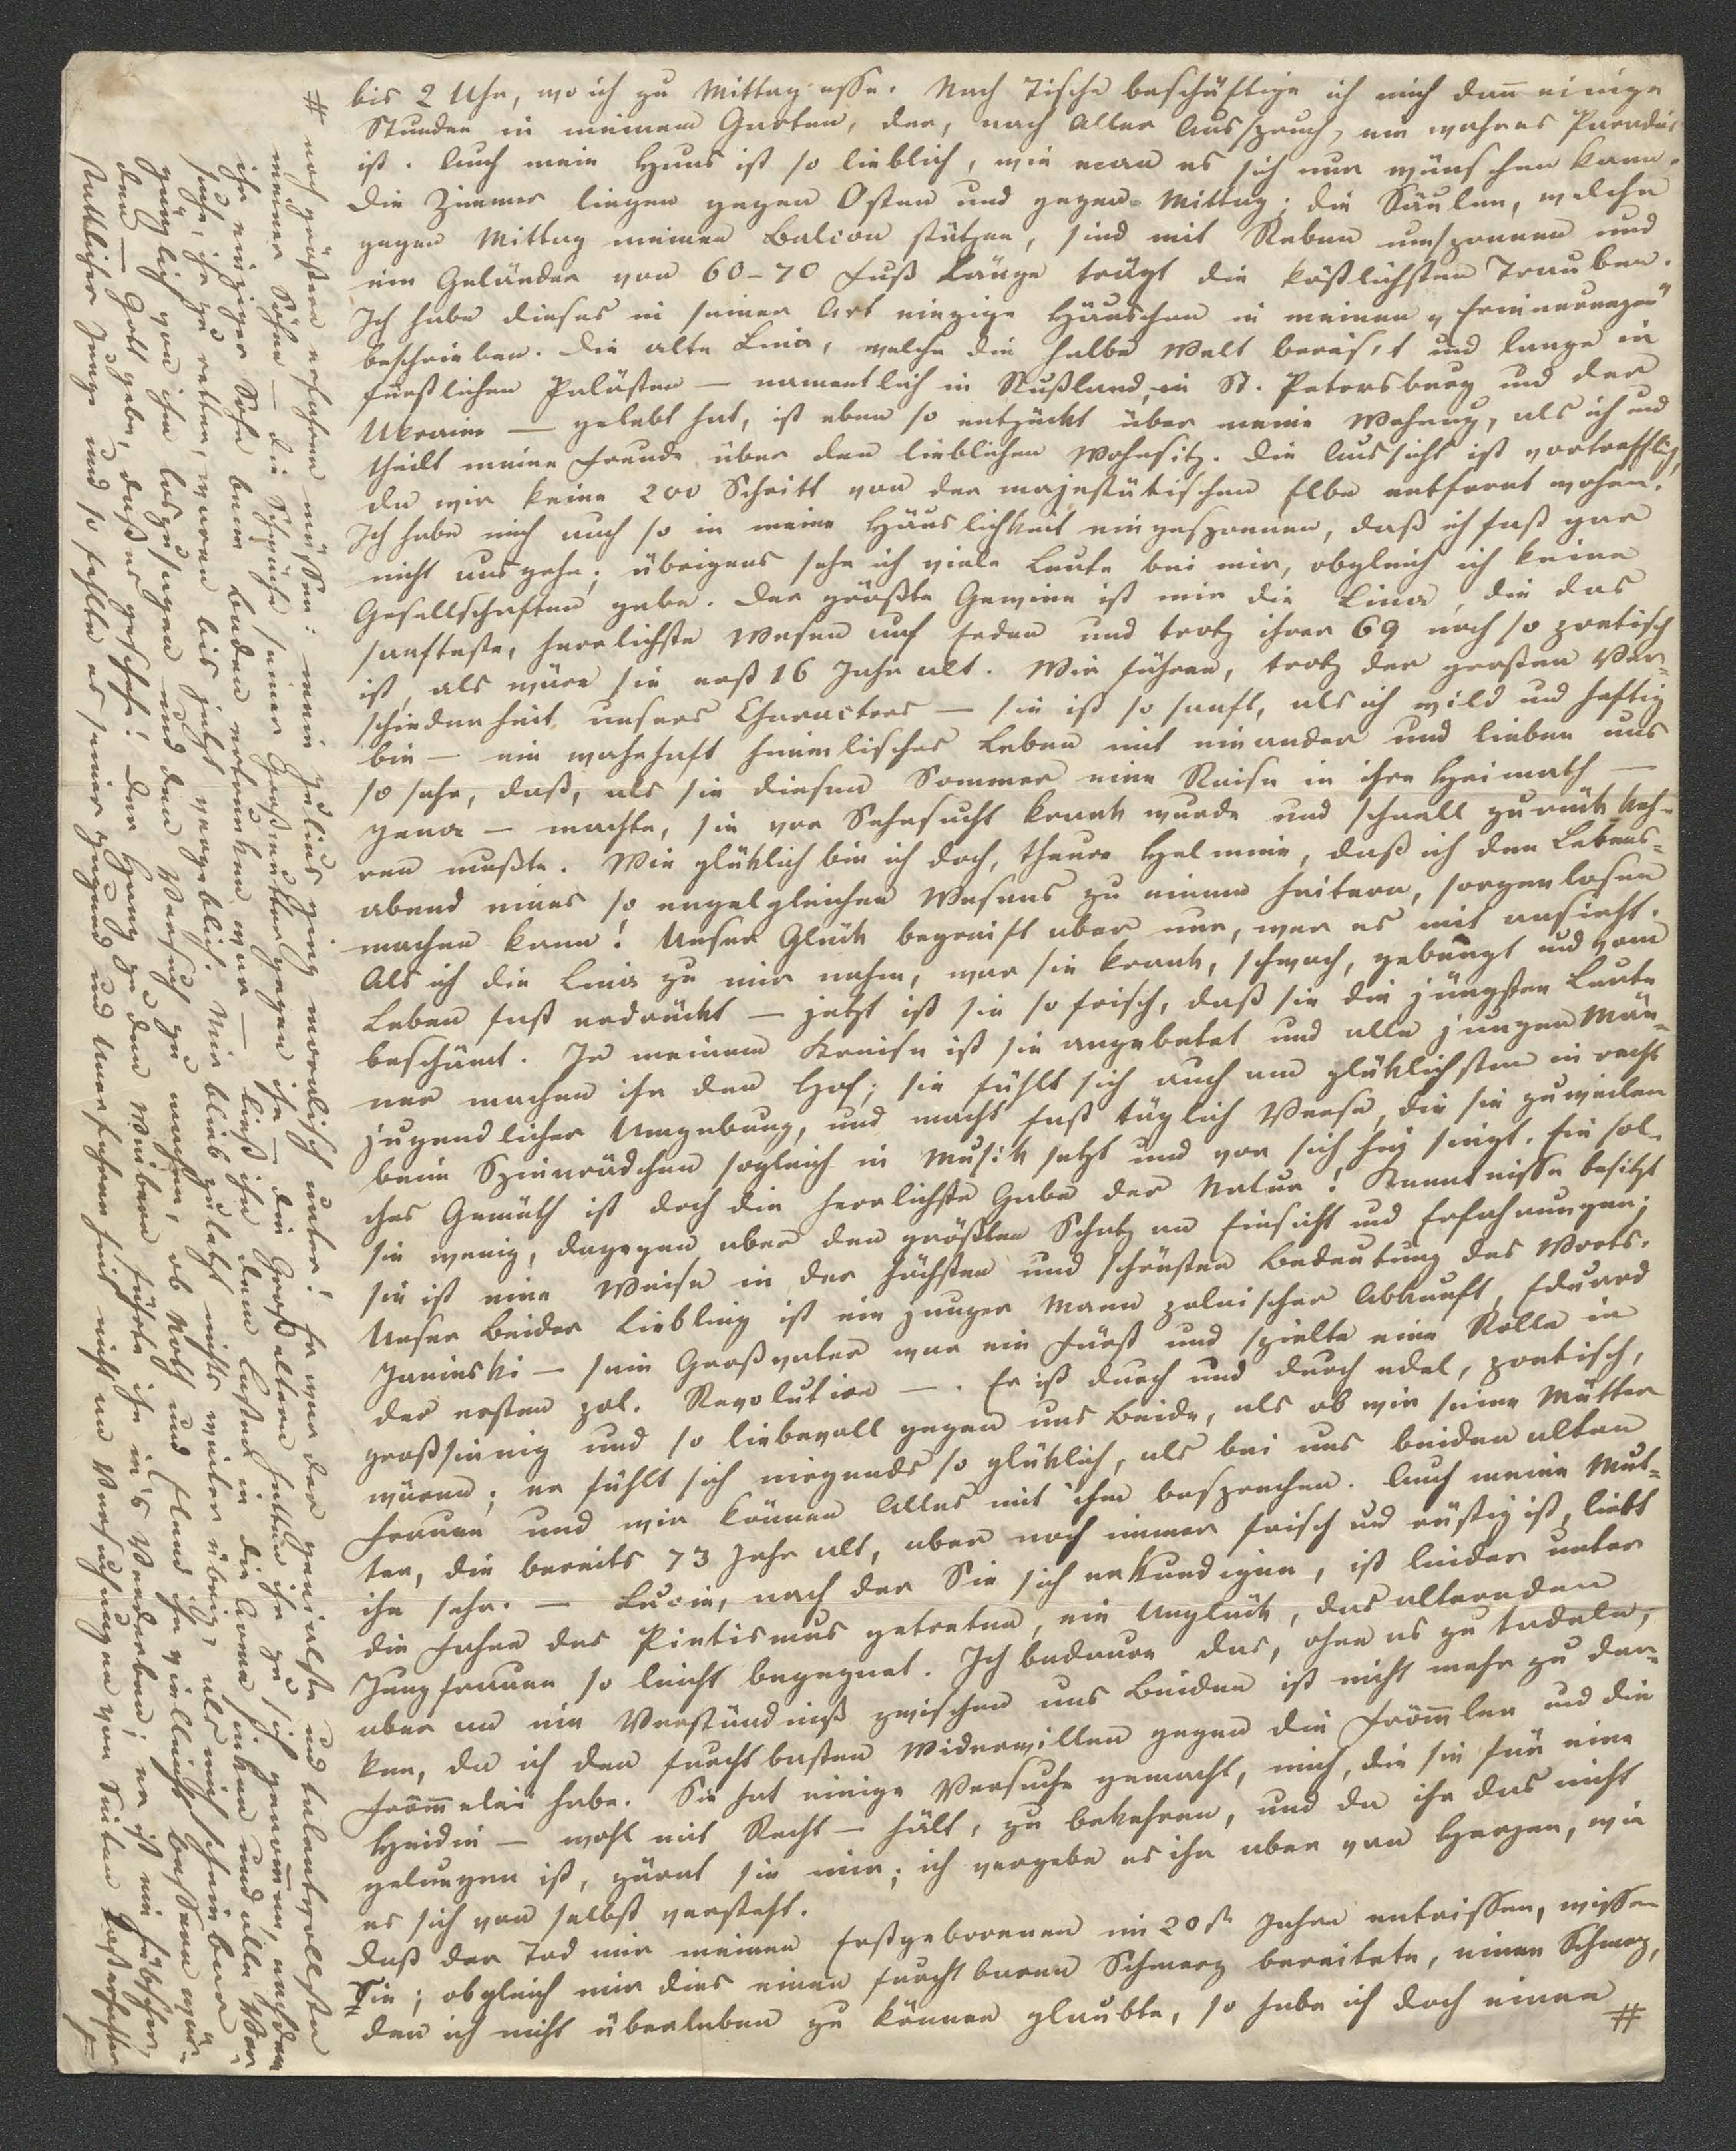 bis 2 Uhr, wo ich zu Mittag esse. Nach Tische beschäftige ich mich dann einige
Stunden in meinem Garten, der, nach Aller Ausspruch, ein wahres Paradies
ist. Auch mein Haus ist so lieblich, wie man es sich nur wünschen kann.
Die Zimmer liegen gegen Osten und gegen Mittag; die Säulen, welche
gegen Mittag meinen Balcon stützen, sind mit Reben umsponnen und
ein Geländer von 60-70 Fuß Länge trägt die köstlichsten Trauben.
Ich habe dieses in seiner Art einzige Häuschen in meinen „Erinnerungen“
beschrieben. Die alte Lina, welche die halbe Welt bereis't und lange in
fürstlichen Palästen — namentlich in Rußland, in St. Petersburg und der
Ukraine — gelebt hat, ist eben so entzückt über meine Wohnung, als ich und
theilt meine Freude über den lieblichen Wohnsitz. Die Aussicht ist vortrefflich,
da wir keine 200 Schritt von der majestätischen Elbe entfernt wohnen.
Ich habe mich auch so in meine Häuslichkeit eingesponnen, daß ich fast gar
nicht ausgehe; übrigens sehe ich viele Leute bei mir, obgleich ich keine
Gesellschaften gebe. Der größte Gewinn ist mir die Lina, die das
sanfteste, herrlichste Wesen auf Erden und trotz ihrer 69 noch so poetisch
ist, als wäre sie erst 16 Jahr alt. Wir führen, trotz der großen Ver-
schiedenheit unsers Characters — sie ist so sanft, als ich wild und heftig
bin — ein wahrhaft himmlisches Leben mit einander und lieben uns
so sehr, daß, als sie diesen Sommer eine Reise in ihre Heimath —
Jena — machte, sie vor Sehnsucht krank wurde und schnell zurück keh-
ren mußte. Wie glüklich bin ich doch, theure Helmine, daß ich den Lebens-
abend eines so engelgleichen Wesens zu einem heitern, sorgenlosen
machen kann! Unser Glük begreift aber nur, wer es mit ansieht.
Als ich die Lina zu mir nahm, war sie krank, schwach, gebeugt und vom
Leben fast erdrückt — jetzt ist sie so frisch, daß sie die jüngsten Leute
beschämt. In meinem Kreise ist sie angebetet und alle jungen Män-
ner machen ihr den Hof; sie fühlt sich auch am glüklichsten in recht
jugendlicher Umgebung, und macht fast täglich Verse, die sie zuweilen
beim Spinnrädchen sogleich in Musik setzt und vor sich hin singt. Ein sol-
ches Gemüth ist doch die herrlichste Gabe der Natur! Kenntnisse besitzt
sie wenig, dagegen aber den größten Schatz an Einsicht und Erfahrungen;
sie ist eine Weise in der höchsten und schönsten Bedeutung des Worts.
Unser Beider Liebling ist ein junger Mann polnischer Abkunft, Eduard
Janinski — sein Großvater war ein Fürst und spielte eine Rolle in
der ersten pol. Revolution —. Er ist durch und durch edel, poetisch,
großsinnig und so liebevoll gegen uns Beide, als ob wir seine Mütter
wären; er fühlt sich nirgends so glüklich, als bei uns beiden alten
Frauen und wir können Alles mit ihm besprechen. Auch meine Mut-
ter, die bereits 73 Jahr alt, aber noch immer frisch und rüstig ist, liebt
ihn sehr. — Lucie, nach der Sie sich erkundigen, ist leider unter
die Fahne des Pietismus getreten, ein Unglük, das alternden
Jungfrauen so leicht begegnet. Ich bedaure das, ohne es zu tadeln;
aber an ein Verständniß zwischen uns Beiden ist nicht mehr zu den-
ken, da ich den furchtbarsten Widerwillen gegen die Frömmler und die
Frömmelei habe. Sie hat einige Versuche gemacht, mich, die sie für eine
Heidin — wohl mit Recht — hält, zu bekehren, und da ihr das nicht
gelungen ist, zürnt sie mir; ich vergebe es ihr aber von Herzen, wie
es sich von selbst versteht.
Daß der Tod mir meinen Erstgeborenen im 20st Jahre entrissen, wissen
Sie; obgleich mir dies einen furchtbaren Schmerz bereitete, einen Schmerz,
den ich nicht überleben zu können glaubte, so habe ich doch einen #
# noch größern erfahren müssen: mein Julius ging moralisch unter! Er war der genialste und talentvollste
meiner Söhne — die Schwäche seiner Großmutter gegen ihn — die Großeltern hatten ihn zu sich genommen, nachdem
ihr einziger Sohn beim Baden ertrunken war — ließ ihn dem Laster in die Arme sinken und alle Ver-
suche, ihn zu retten, waren bis jetzt vergeblich. Mir blieb zuletzt nichts weiter übrig, als mich scheinbar
gänzlich von ihm loszusagen und den Versuch zu machen, ob Noth und Elend ihn vielleicht bessern wür-
den — Gott gebe, daß es geschieht! Der Hang zu den Weibern führte ihn in's Verderben; er ist ein hübscher,
stattlicher Junge und so fehlte es seiner Jugend und Unerfahrenheit nicht an Versuchungen von Seiten